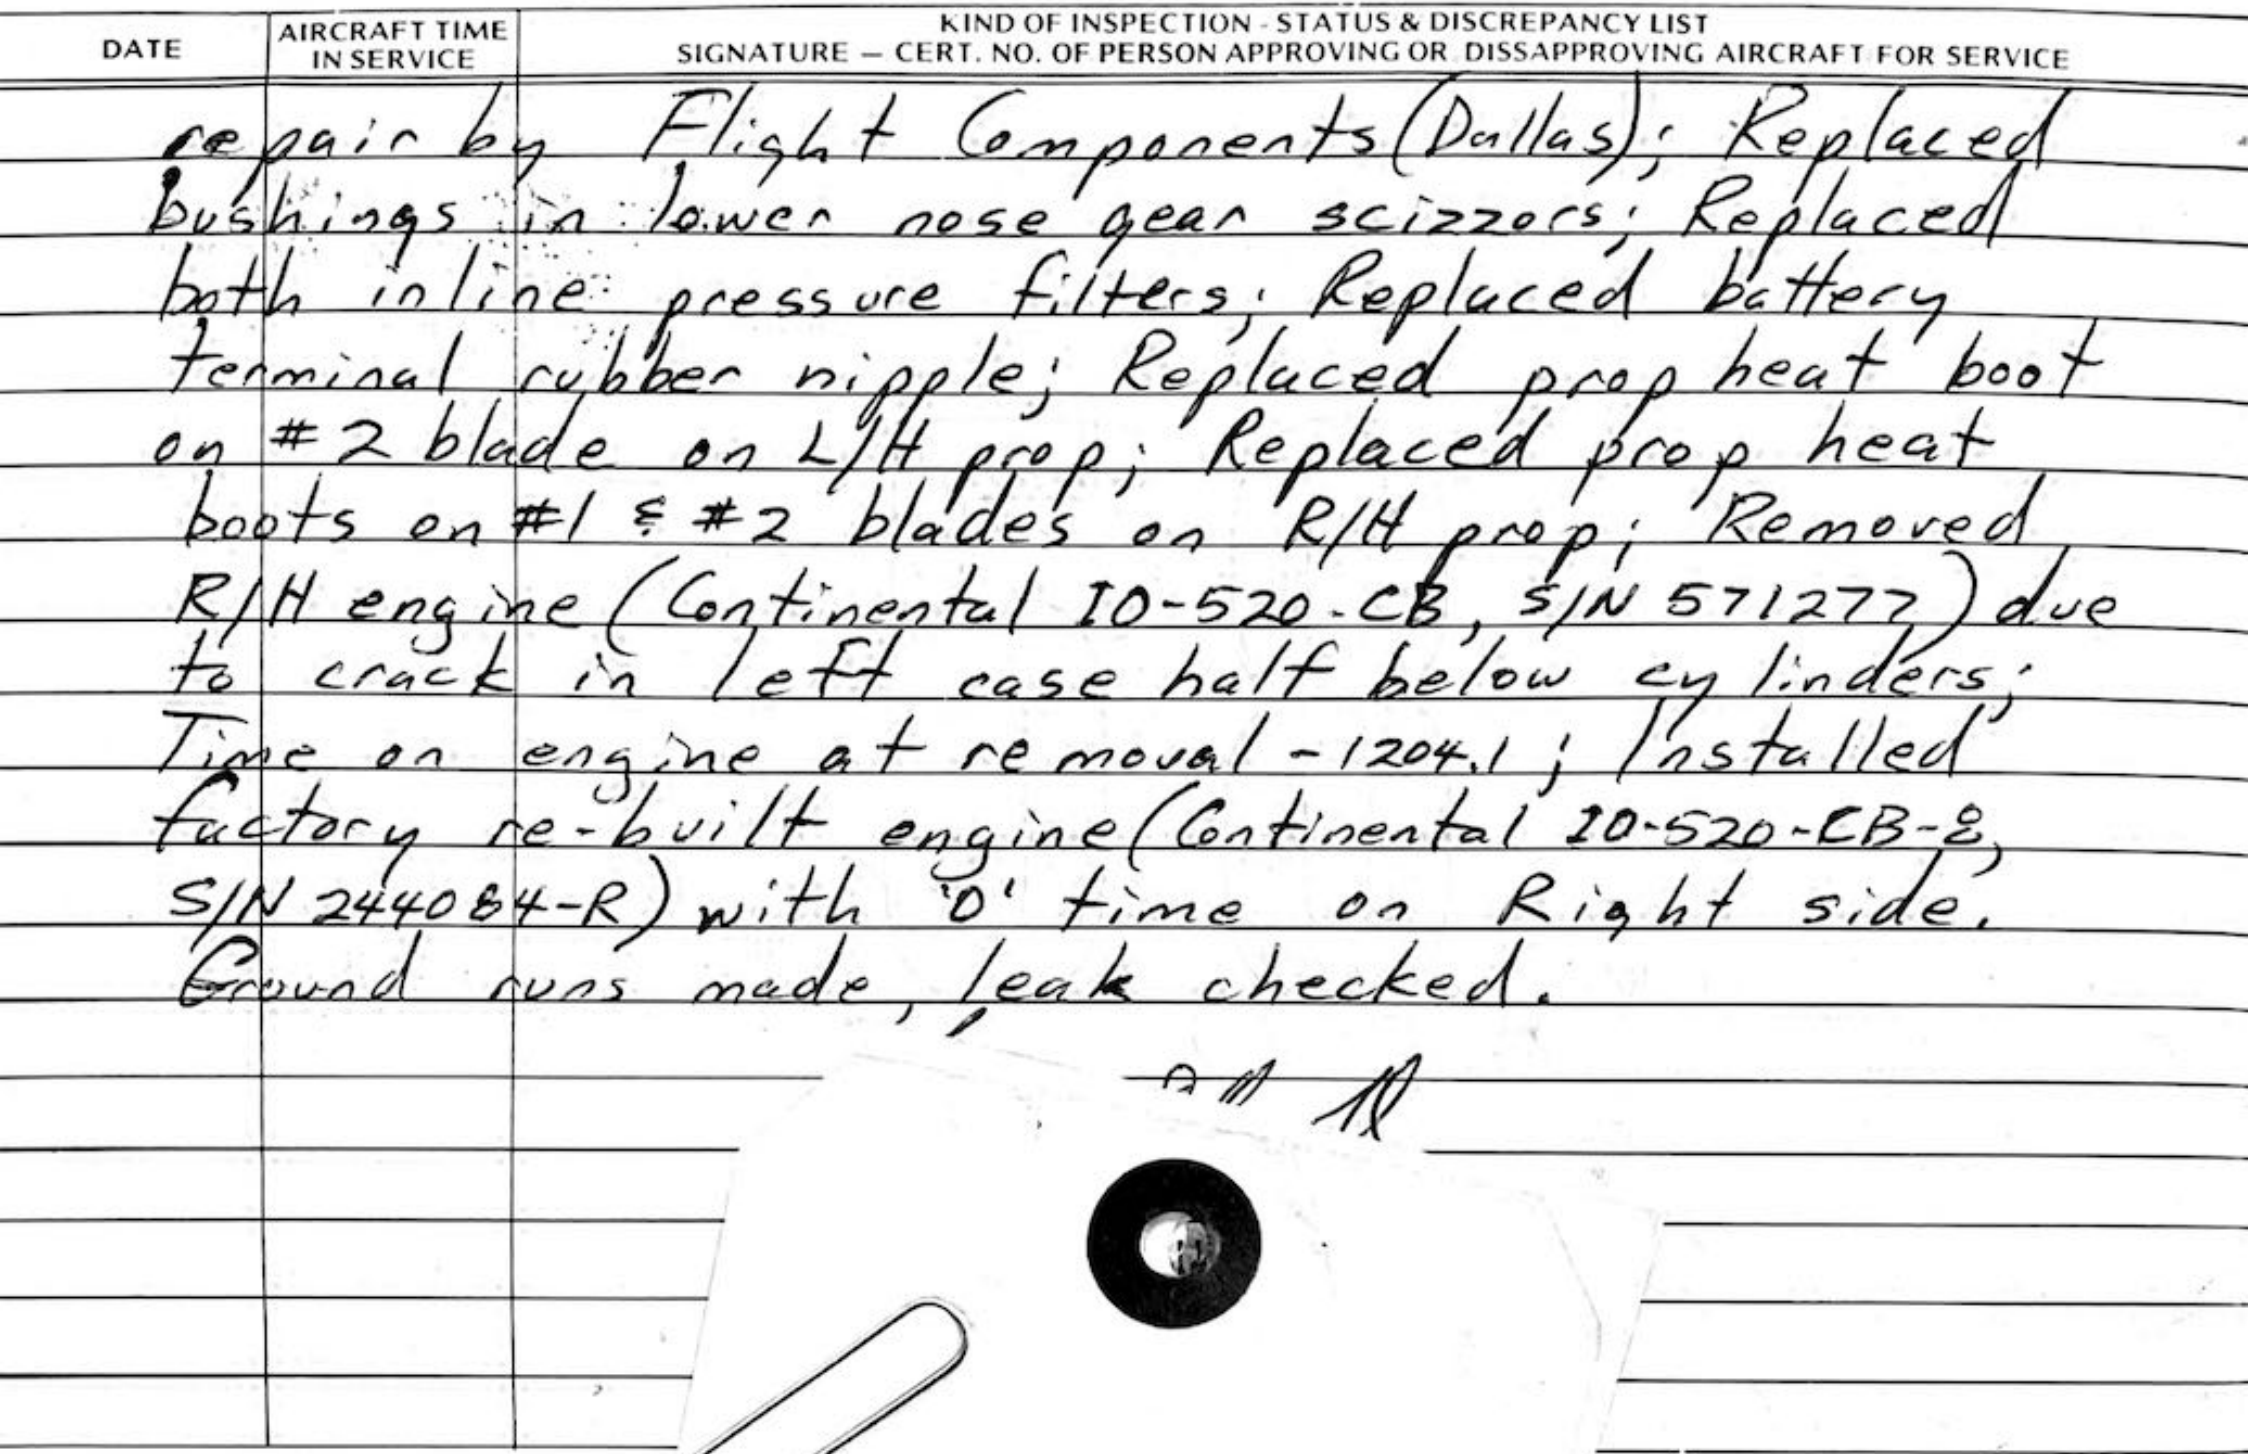 DATE
AIRCRAFT TIME
IN SERVICE
KIND OF INSPECTION - STATUS & DISCREPANCY LIST
SIGNATURE — CERT. NO. OF PERSON APPROVING OR DISSAPPROVING AIRCRAFT FOR SERVICE
repair by Flight Components (Dallas); Replaced
bushings in lower nose gear scizzors; Replaced
both inline pressure filters; Replaced battery
terminal rubber nipple; Replaced prop heat boot
on #2 blade on L/H prop; Replaced prop heat
boots on #1 & #2 blades on R/H prop; Removed
R/H engine (Continental IO-520-CB, S/N 571277) due
to crack in left case half below cylinders;
Time on engine at removal - 1204.1; Installed
factory re-built engine (Continental IO-520-CB-8,
S/N 244084-R) with '0' time on Right side.
Ground runs made, leak checked.